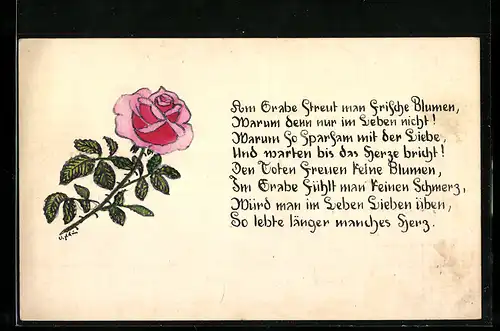 Am Grabe Streut man Frische Blumen,
Warum denn nur im Leben nicht!
Warum So Sparsam mit der Liebe,
Und warten bis das Herze bricht!
Den Toten Freuen Keine Blumen,
Im Grabe Fühlt man Keinen Schmerz,
Würd man im Leben Lieben üben,
So lebte länger manches Herz.